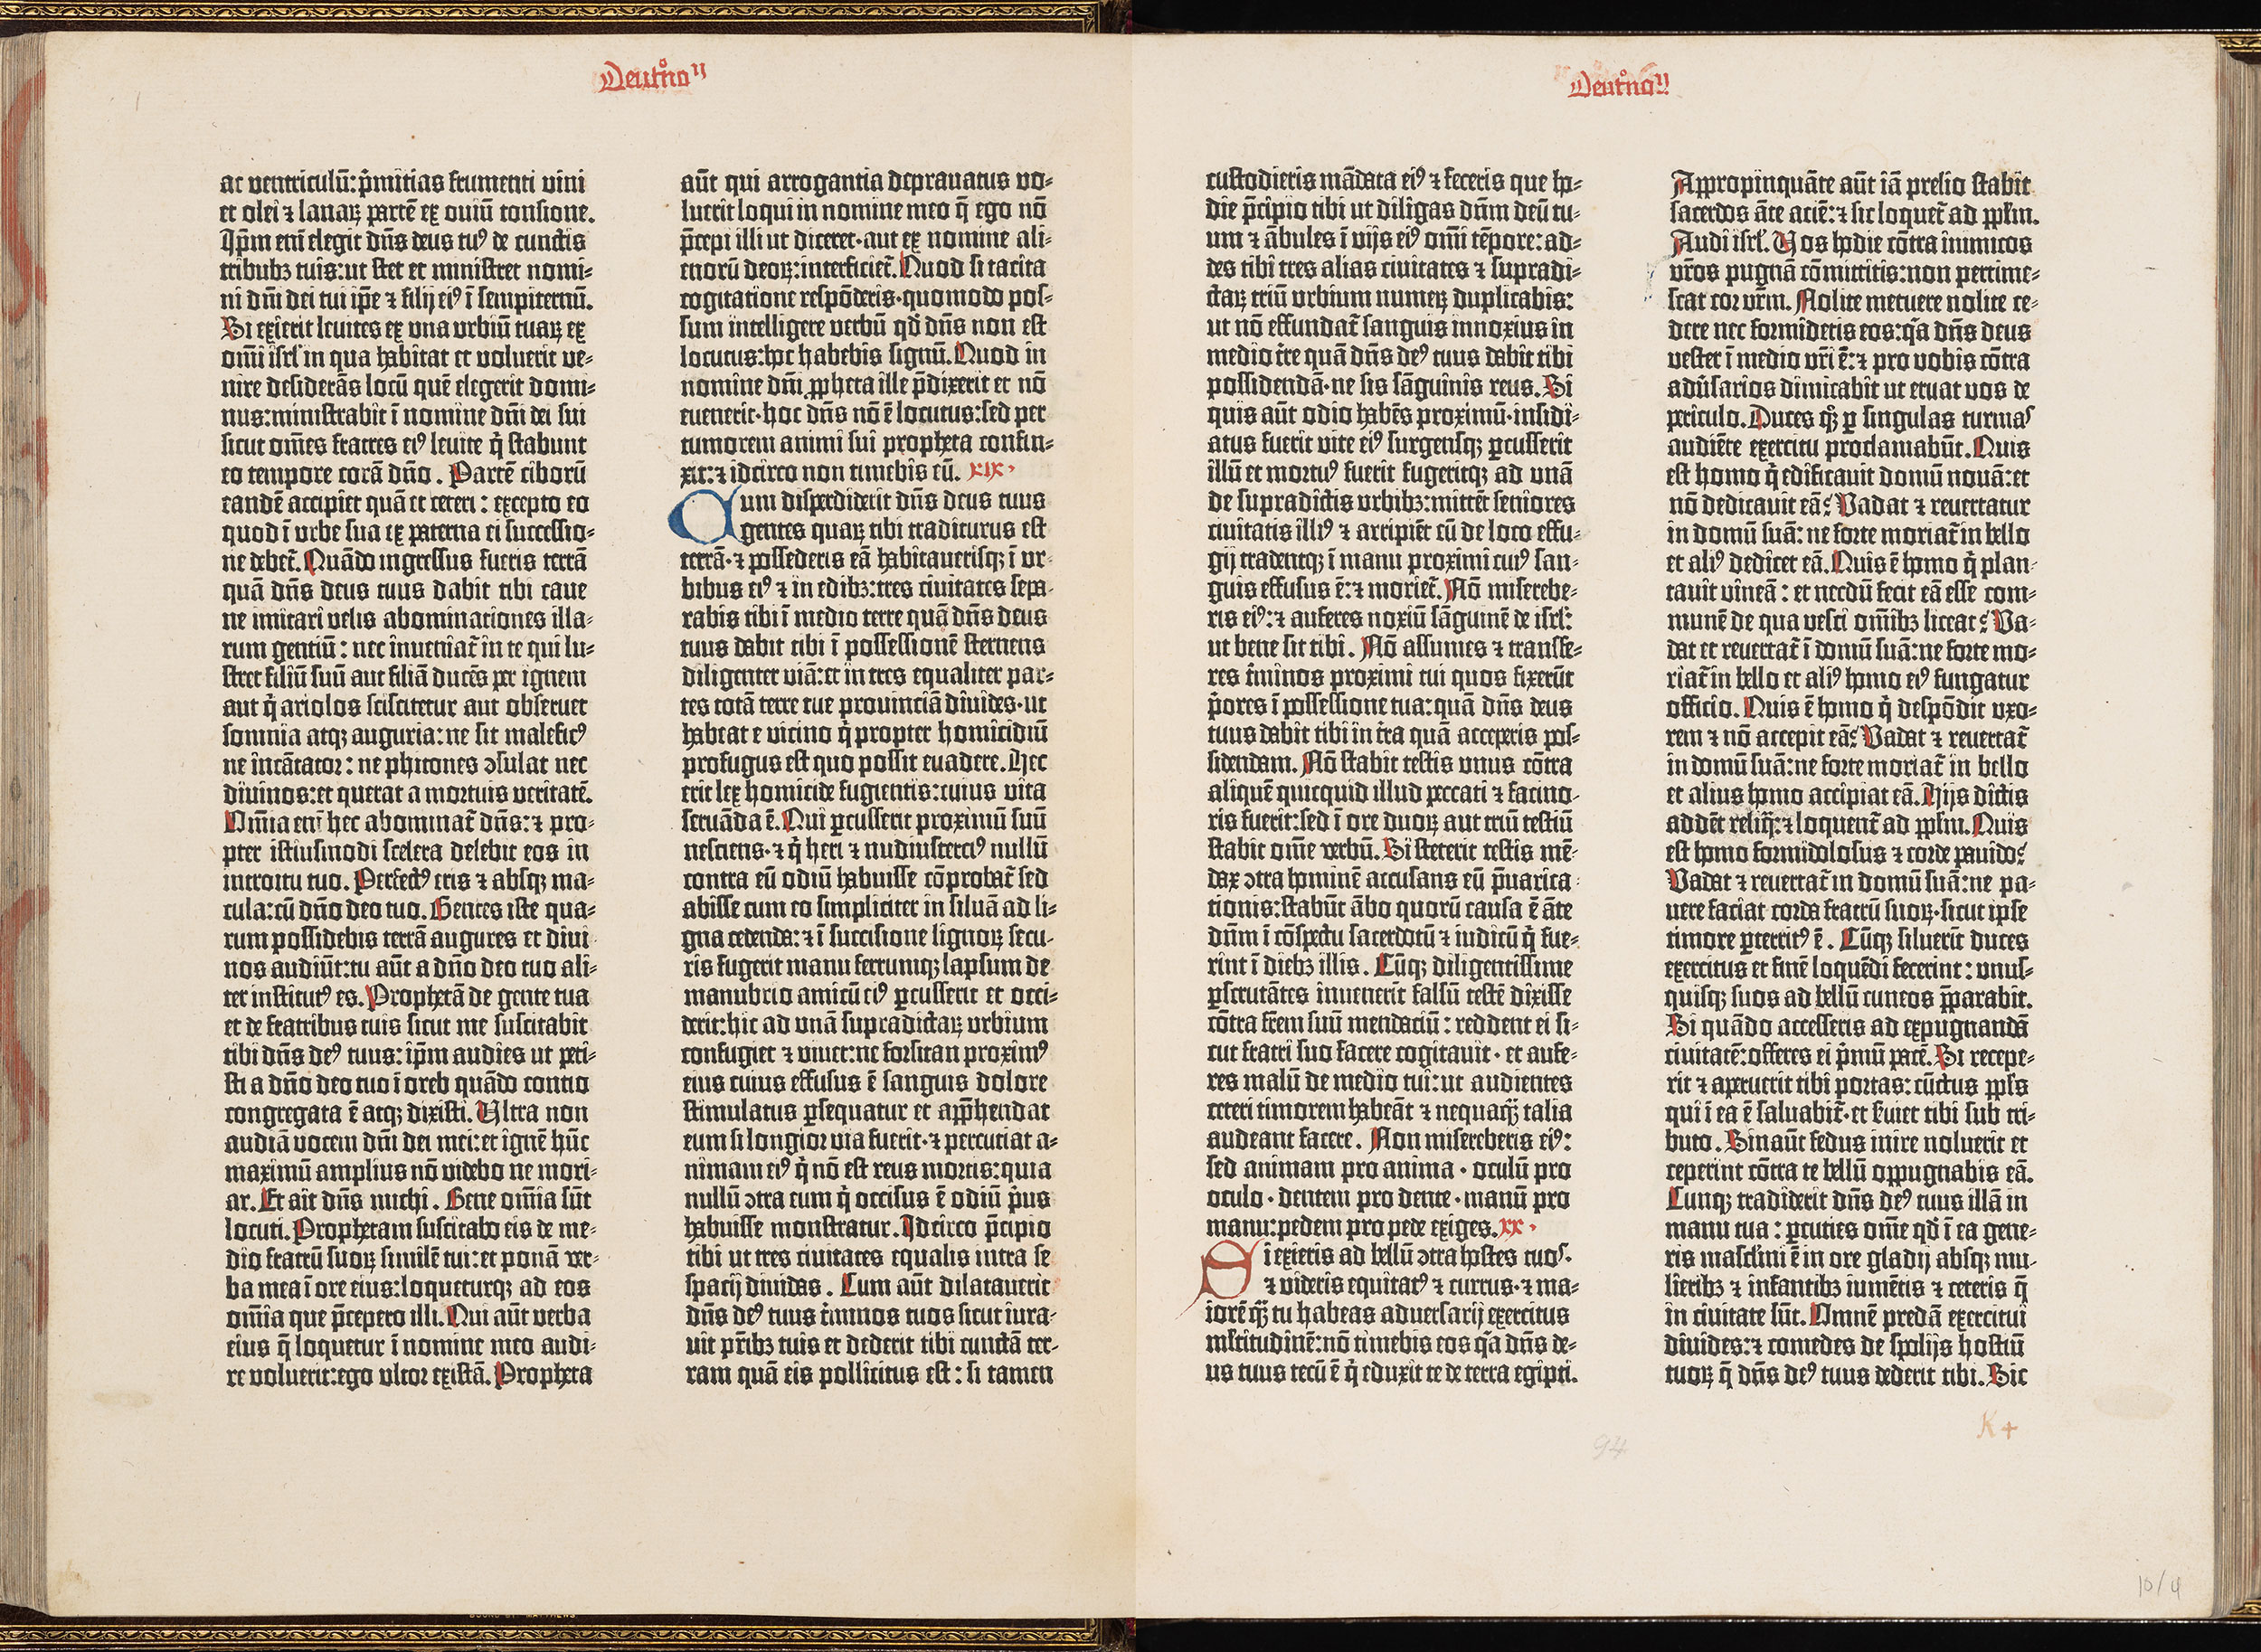 Deutͬno
ac ventriculū: p̄mitias frumenti vini
et olei ⁊ lanaꝝ partē ex ouiū tonsione.
Ip̄m eni elegit dn̄s deus tuꝰ de cunctis
tribubꝫ tuis: ut stet et ministret nomi⸗
ni dn̄i dei tui ip̄e ⁊ filij eiꝰ ī sempiternū.
Si exierit leuites ex una urbiū tuaꝝ ex
om̄i isrl' in qua habitat et voluerit ve⸗
nire desiderās locū quē elegerit domi⸗
nus: ministrabit ī nomine dn̄i dei sui
sicut om̄es fratres eiꝰ leuite q̇ stabunt
eo tempore corā dn̄o. Partē ciborū
eandē accipiet quā et ceteri: excepto eo
quod ī urbe sua ex paterna ei successio⸗
ne debet̄. Quādo ingressus fueris terrā
quā dn̄s deus tuus dabit tibi caue
ne imitari velis abominationes illa⸗
rum gentiū: nec inueniat̄ in te qui lu⸗
stret filiū suū aut filiā ducēs per ignem
aut q̇ ariolos sciscitetur aut obseruet
somnia atqꝫ auguria: ne sit maleficꝰ
ne incātator: ne phitones ɔsulat nec
diuinos: et querat a mortuis veritatē.
Om̄ia enī hec abominat̄ dn̄s: ⁊ pro⸗
pter istiusmodi scelera delebit eos in
introitu tuo. Perfectꝰ eris ⁊ absqꝫ ma⸗
cula: cū dn̄o deo tuo. Gentes iste qua⸗
rum possidebis terrā augures et diui⸗
nos audiūt: tu aūt a dn̄o deo tuo ali⸗
ter institutꝰ es. Prophetā de gente tua
et de fratribus tuis sicut me suscitabit
tibi dn̄s deꝰ tuus: ip̄m audies ut peti⸗
sti a dn̄o deo tuo ī oreb quādo contio
congregata ē atqꝫ dixisti. Ultra non
audiā vocem dn̄i dei mei: et ignē hūc
maximū amplius nō videbo ne mori⸗
ar. Et ait dn̄s michi. Bene om̄ia sūt
locuti. Prophetam suscitabo eis de me⸗
dio fratrū suoꝝ similē tui: et ponā ver⸗
ba mea ī ore eius: loqueturqꝫ ad eos
om̄ia que p̄cepero illi. Qui aūt verba
eius q̄ loquetur ī nomine meo audi⸗
re voluerit: ego ultor existā. Propheta
aūt qui arrogantia depravatus vo⸗
luerit loqui in nomine meo q̄ ego nō
p̄cepi illi ut diceret · aut ex nomine ali⸗
enorū deoꝝ: interficiet̄. Quod si tacita
cogitatione respōderis · quomodo pos⸗
sum intelligere verbū qd̄ dn̄s non est
locutus: hoc habebis signū. Quod in
nomine dn̄i ꝓpheta ille p̄dixerit et nō
evenerit · hoc dn̄s nō ē locutus: sed per
tumorem animi sui propheta confin⸗
xit: ⁊ idcirco non timebis eū. xix·
Cum disperdiderit dn̄s deus tuus
gentes quaꝝ tibi traditurus est
terrā · ⁊ possederis eā habitauerisqꝫ ī ur⸗
bibus eiꝰ ⁊ in edibꝫ: tres ciuitates sepa⸗
rabis tibi ī medio terre quā dn̄s deus
tuus dabit tibi ī possessionē sternens
diligenter viā: et in tres equaliter par⸗
tes totā terre tue prouinciā diuides · ut
habeat e vicino q̇ propter homicidiū
profugus est quo possit euadere. Hec
erit lex homicide fugientis: cuius vita
seruāda ē. Qui ꝑcusserit proximū suū
nesciens · ⁊ q̇ heri ⁊ nudiusterciꝰ nullū
contra eū odiū habuisse cōprobat̄ sed
abisse cum eo simpliciter in siluā ad li⸗
gna cedenda: ⁊ ī succisione lignoꝝ secu⸗
ris fugerit manu ferrumqꝫ lapsum de
manubrio amicū eiꝰ ꝑcusserit et occi⸗
derit: hic ad unā supradictaꝝ urbium
confugiet ⁊ viuet: ne forsitan proximꝰ
eius cuius effusus ē sanguis dolore
stimulatus ꝑsequatur et app̄hendat
eum si longior via fuerit · ⁊ percutiat a⸗
nimam eiꝰ q̇ nō est reus mortis: quia
nullū ɔtra eum q̇ occisus ē odiū p̄us
habuisse monstratur. Idcirco p̄cipio
tibi ut tres ciuitates equalis intra se
spacij diuidas. Cum aūt dilatauerit
dn̄s deꝰ tuus t̄minos tuos sicut iura⸗
uit pr̄ibꝫ tuis et dederit tibi cunctā ter⸗
ram quā eis pollicitus est: si tamen
Deutͬno
custodieris mādata eiꝰ ⁊ feceris que ho⸗
die p̄cipio tibi ut diligas dn̄m deū tu⸗
um ⁊ ābules ī vijs eiꝰ om̄i tēpore: ad⸗
des tibi tres alias ciuitates ⁊ supradi⸗
ctaꝝ triū urbium numeꝝ duplicabis:
ut nō effundat̄ sanguis innoxius in
medio t̄re quā dn̄s deꝰ tuus dabit tibi
possidendā · ne sis sāguinis reus. Si
quis aūt odio habēs proximū · insidi⸗
atus fuerit vite eiꝰ surgensqꝫ ꝑcusserit
illū et mortuꝰ fuerit fugeritqꝫ ad unā
de supradictis urbibꝫ: mittēt seniores
ciuitatis illiꝰ ⁊ arripiēt eū de loco effu⸗
gij tradentqꝫ ī manu proximi cuiꝰ san⸗
guis effusus ē: ⁊ moriet̄. Nō miserebe⸗
ris eiꝰ: ⁊ auferes noxiū sāguinē de isrl:
ut bene sit tibi. Nō assumes ⁊ transfe⸗
res t̄minos proximi tui quos fixerūt
p̄ores ī possessione tua: quā dn̄s deus
tuus dabit tibi in t̄ra quā acceperis pos⸗
sidendam. Nō stabit testis unus cōtra
aliquē quicquid illud peccati ⁊ facino⸗
ris fuerit: sed ī ore duoꝝ aut triū testiū
stabit om̄e verbū. Si steterit testis mē⸗
dax ɔtra hominē accusans eū p̄uarica⸗
tionis: stabūt ābo quorū causa ē āte
dn̄m ī cōspectu sacerdotū ⁊ iudicū q̇ fue⸗
rint ī diebꝫ illis. Cūqꝫ diligentissime
ꝑscrutātes inuenerīt falsū testē dixisse
cōtra frēm suū mendaciū: reddent ei si⸗
cut fratri suo facere cogitauit · et aufe⸗
res malū de medio tui: ut audientes
ceteri timorem habeāt ⁊ nequaq̄ talia
audeant facere. Non misereberis eiꝰ:
sed animam pro anima · oculū pro
oculo · dentem pro dente · manū pro
manu: pedem pro pede exiges. xx·
Si exieris ad bellū ɔtra hostes tuos ·
⁊ videris equitatꝰ ⁊ currus · ⁊ ma⸗
iorē q̄ꝫ tu habeas aduersarij exercitus
ml̄titudinē: nō timebis eos q̄a dn̄s de⸗
us tuus tecū ē q̇ eduxit te de terra egipti.
Appropinquāte aūt iā prelio stabit
sacerdos āte aciē: ⁊ sic loquet̄ ad ppl̄m.
Audi isrl'. Uos hodie cōtra inimicos
vr̄os pugnā cōmittitis: non pertime⸗
scat cor vr̄m. Nolite metuere nolite ce⸗
dere nec formideris eos: q̄a dn̄s deus
vester ī medio vr̄i ē: ⁊ pro vobis cōtra
adūsarios dimicabit ut eruat vos de
periculo. Duces qꝫ ꝑ singulas turmas
audiēte exercitu proclamabūt. Quis
est homo q̇ edificauit domū nouā: et
nō dedicauit eā? Vadat ⁊ reuertatur
in domū suā: ne forte moriat̄ in bello
et aliꝰ dedicet eā. Quis ē homo q̇ plan⸗
tauit vineā: et necdū fecit eā esse com⸗
munē de qua vesci om̄ibꝫ liceat? Va⸗
dat et reuertat̄ ī domū suā: ne forte mo⸗
riat̄ in bello et aliꝰ homo eiꝰ fungatur
officio. Quis ē homo q̇ despōdit uxo⸗
rem ⁊ nō accepit eā? Vadat ⁊ reuertat̄
in domū suā: ne forte moriat̄ in bello
et alius homo accipiat eā. Hijs dictis
addēt reliq̄: ⁊ loquent̄ ad ppl̄m. Quis
est homo formidolosus ⁊ corde pauido?
Vadat ⁊ reuertat̄ in domū suā: ne pa⸗
uere faciat corda fratrū suoꝝ · sicut ipse
timore ꝑterritꝰ ē. Cūqꝫ siluerīt duces
exercitus et finē loquēdi fecerint: unus⸗
quisqꝫ suos ad bellū cuneos p̄parabit.
Si quādo accesseris ad expugnandā
ciuitatē: offeres ei p̄mū pacē. Si recepe⸗
rit ⁊ aperuerit tibi portas: cūctus ppl̄s
qui ī ea ē saluabit̄ · et seruiet tibi sub tri⸗
buto. Sin aūt fedus inire noluerit et
ceperint cōtra te bellū oppugnabis eā.
Cunqꝫ tradiderit dn̄s deꝰ tuus illā in
manu tua: ꝑcuties om̄e qd̄ ī ea gene⸗
ris masclīni ē in ore gladij absqꝫ mu⸗
lieribꝫ ⁊ infantibꝫ iumētis ⁊ ceteris q̄
in ciuitate sūt. Omnē predā exercitui
diuides: ⁊ comedes de spolijs hostiū
tuoꝝ q̄ dn̄s deꝰ tuus dederit tibi. Sic
K +
94
10/4